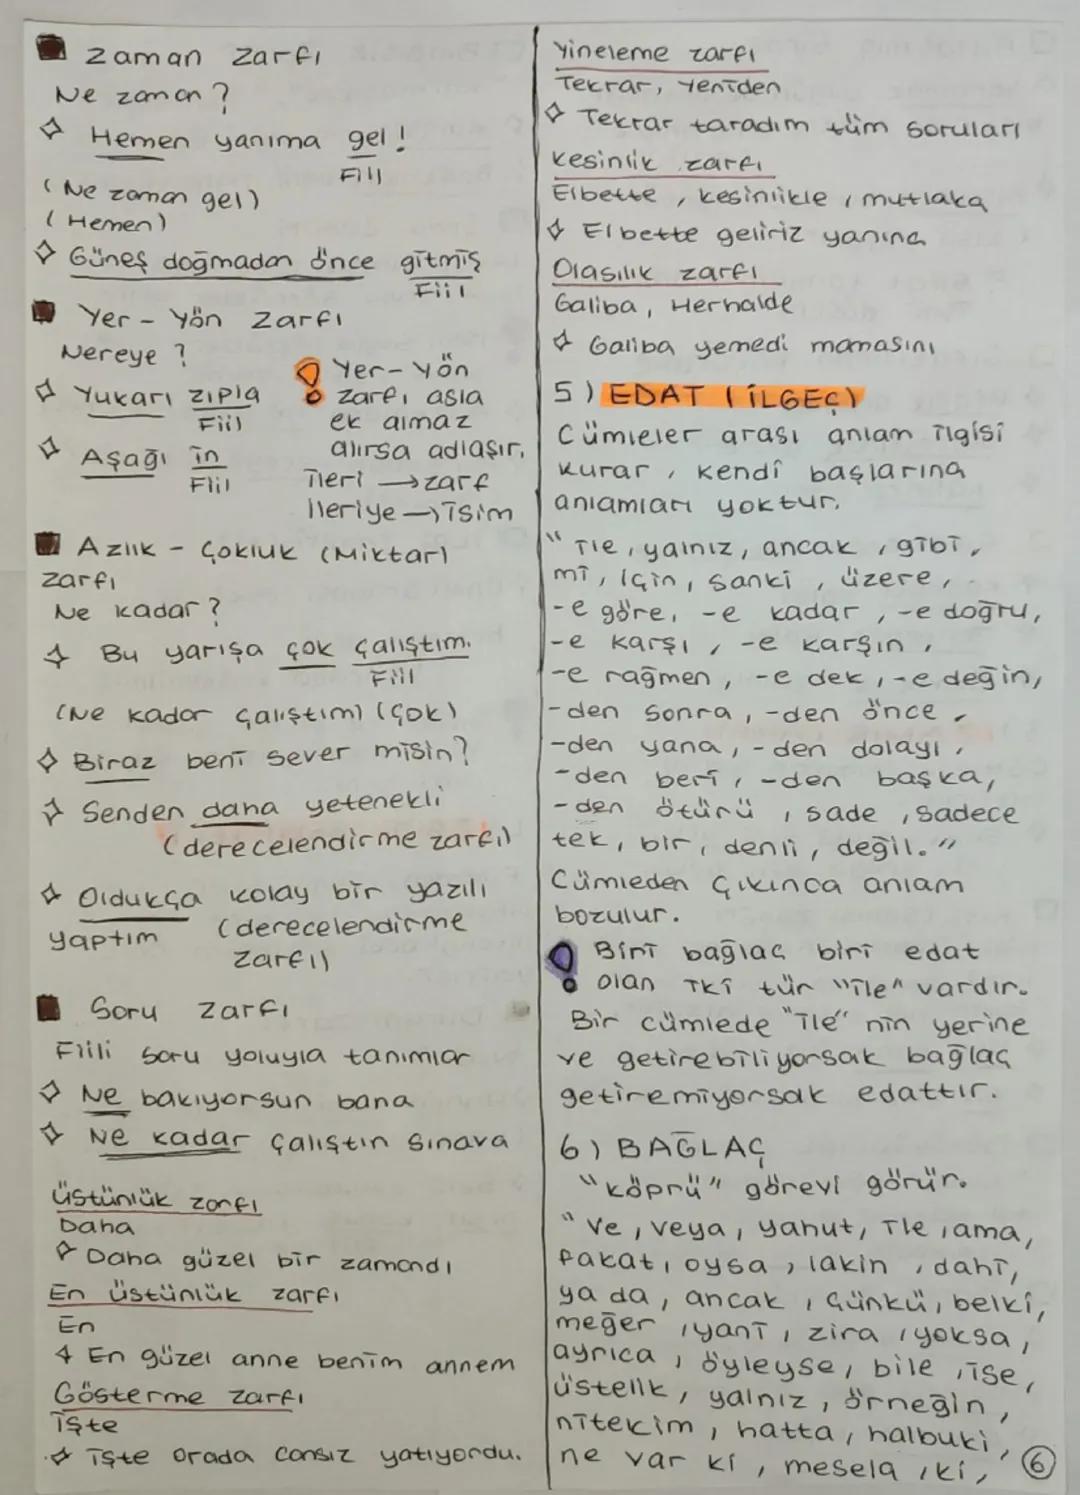 Zaman Zarfı
Ne zaman ?
Hemen yanıma gel !
Fiil
( Ne zaman gel )
( Hemen )
Güneş doğmadan önce gitmiş
Fiil
Yer - Yön Zarfı
Nereye ?
Yukarı zıpla
Fiil
Aşağı in
Fiil
Yer - Yön
zarfı asla
ek almaz
alırsa adlaşır.
İleri → zarf
İleriye → isim
Azlık - Çokluk (Miktar)
zarfı
Ne kadar ?
Bu yarışa çok çalıştım.
Fiil
(Ne kadar çalıştım) (Çok)
Biraz beni sever misin?
Senden daha yetenekli
(derecelendirme zarfı)
Oldukça kolay bir yazılı
yaptım (derecelendirme
zarfı)
Soru Zarfı
Fiili soru yoluyla tanımlar
Ne bakıyorsun bana
Ne kadar çalıştın sınava
Üstünlük zarfı
Daha
Daha güzel bir zamandı
En üstünlük zarfı
En
En güzel anne benim annem
Gösterme zarfı
İşte
İşte orada cansız yatıyordu.
Yineleme zarfı
Tekrar, Yeniden
Tekrar taradım tüm soruları
Kesinlik zarfı
Elbette , kesinlikle , mutlaka
Elbette geliriz yanına
Olasılık zarfı
Galiba , Herhalde
Galiba yemedi mamasını
5) EDAT (İLGEÇ)
Cümleler arası anlam ilgisi
kurar , kendi başlarına
anlamları yoktur.
" İle , yalnız, ancak , gibi ,
mi , için , sanki , üzere ,
-e göre, -e kadar , -e doğru,
-e karşı , -e karşın ,
-e rağmen , -e dek , -e değin,
-den sonra , -den önce ,
-den yana , -den dolayı ,
-den beri , -den başka,
-den ötürü , sade , sadece
tek , bir , denli , değil. "
Cümleden çıkınca anlam
bozulur.
Biri bağlaç biri edat
olan iki tür "ile" vardır.
Bir cümlede "ile" nin yerine
ve getirebiliyorsak bağlaç
getiremiyorsak edattır.
6) BAĞLAÇ
"köprü" görevi görür.
" Ve , veya , yahut, ile , ama,
fakat , oysa , lakin , dahi,
ya da , ancak , çünkü , belki,
meğer , yani , zira , yoksa ,
ayrıca , öyleyse , bile , ise,
üstelik , yalnız , örneğin ,
nitekim , hatta , halbuki ,
ne var ki , mesela , ki ,
6